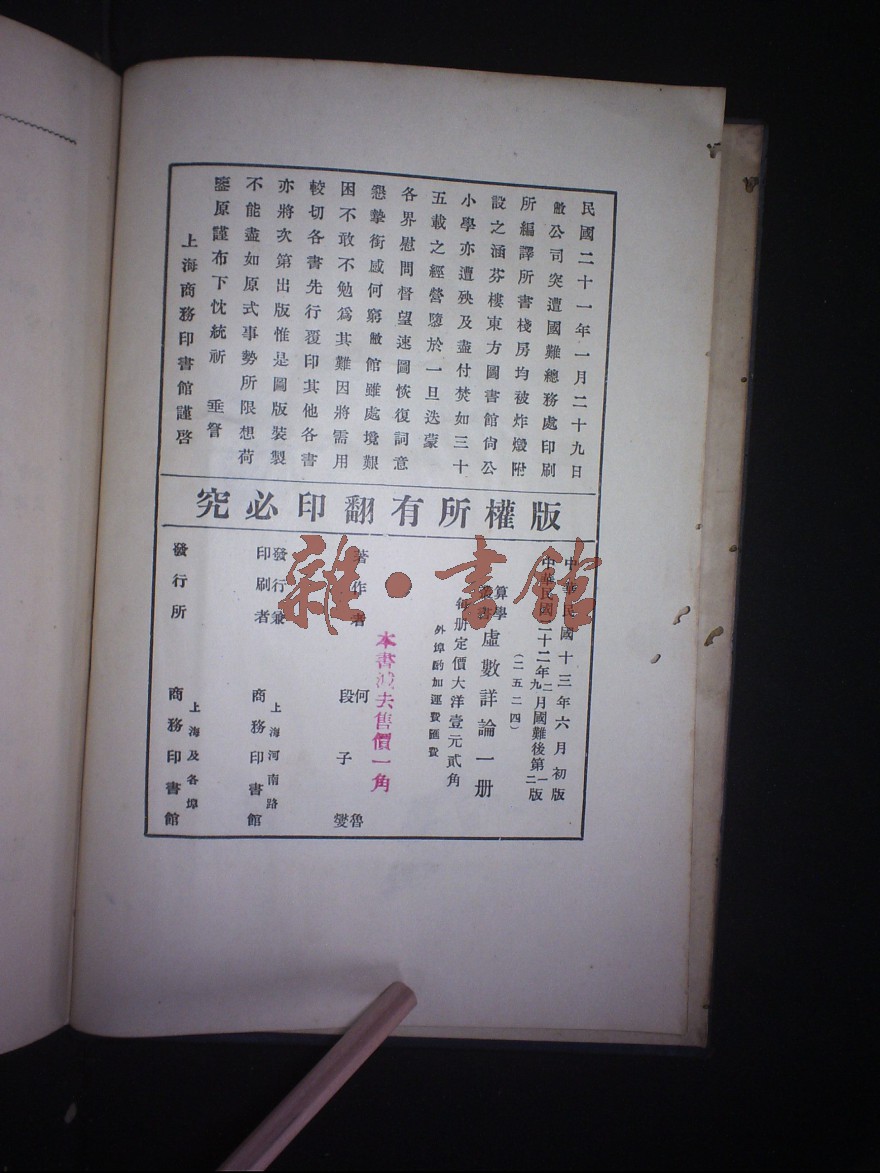 民國二十一年一月二十九日
敝公司突遭國難總務處印刷
所編譯所書棧房均被炸燬附
設之涵芬樓東方圖書館尙公
小學亦遭殃及盡付焚如三十
五載之經營隳於一旦迭蒙
各界慰問督望速圖恢復詞意
懇摯銜感何窮敝館雖處境艱
困不敢不勉爲其難因將需用
較切各書先行覆印其他各書
亦將次第出版惟是圖版裝製
不能盡如原式事勢所限想荷
鑒原謹布下忱統祈 垂詧
上海商務印書館謹啓
版權所有翻印必究
中華民國十三年六月初版
中華民國二十二年二月國難後第一版
九 二
(二五二四)
算學叢書 虛數詳論一册
每册定價大洋壹元貳角
外埠酌加運費匯費
本書 去售價一角
著作者 何魯
段子燮
發行兼印刷者 上海河南路
商務印書館
發行所 上海及各埠
商務印書館
雜·書館